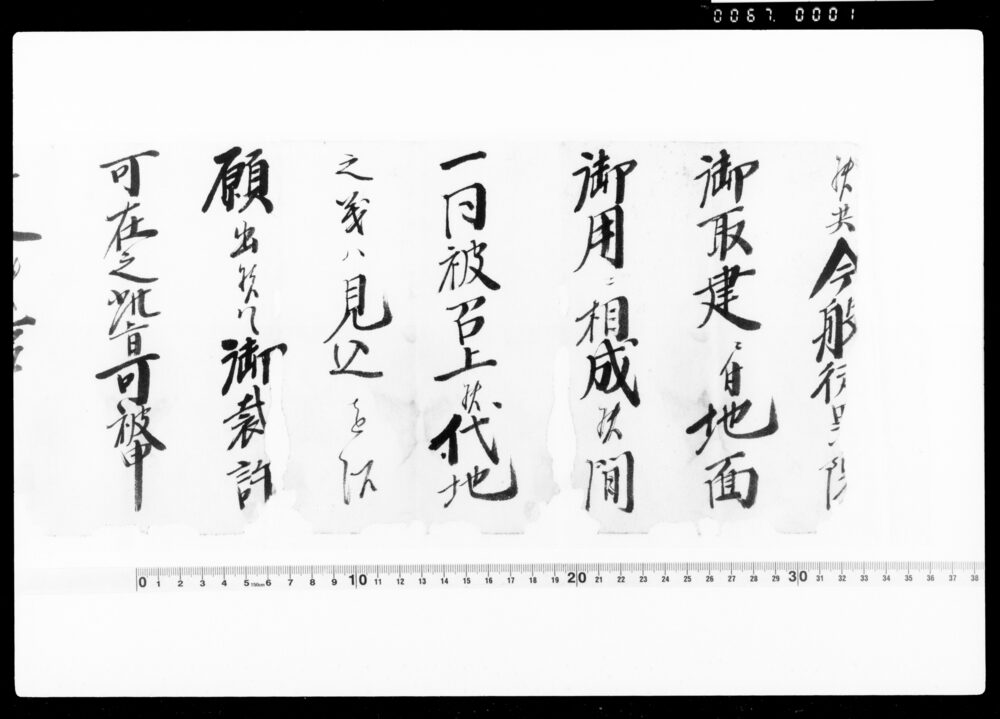 0067. 0001
候共今般行
御取建ニ付地面
御用ニ相成候間
一同被召上候代地
之義ハ見込を以
願出候ハヽ御裁許
可在之此旨可被申
0 1 2 3 4 5 150cm 6 7 8 9 10 11 12 13 14 15 16 17 18 19 20 21 22 23 24 25 26 27 28 29 30 31 32 33 34 35 36 37 38